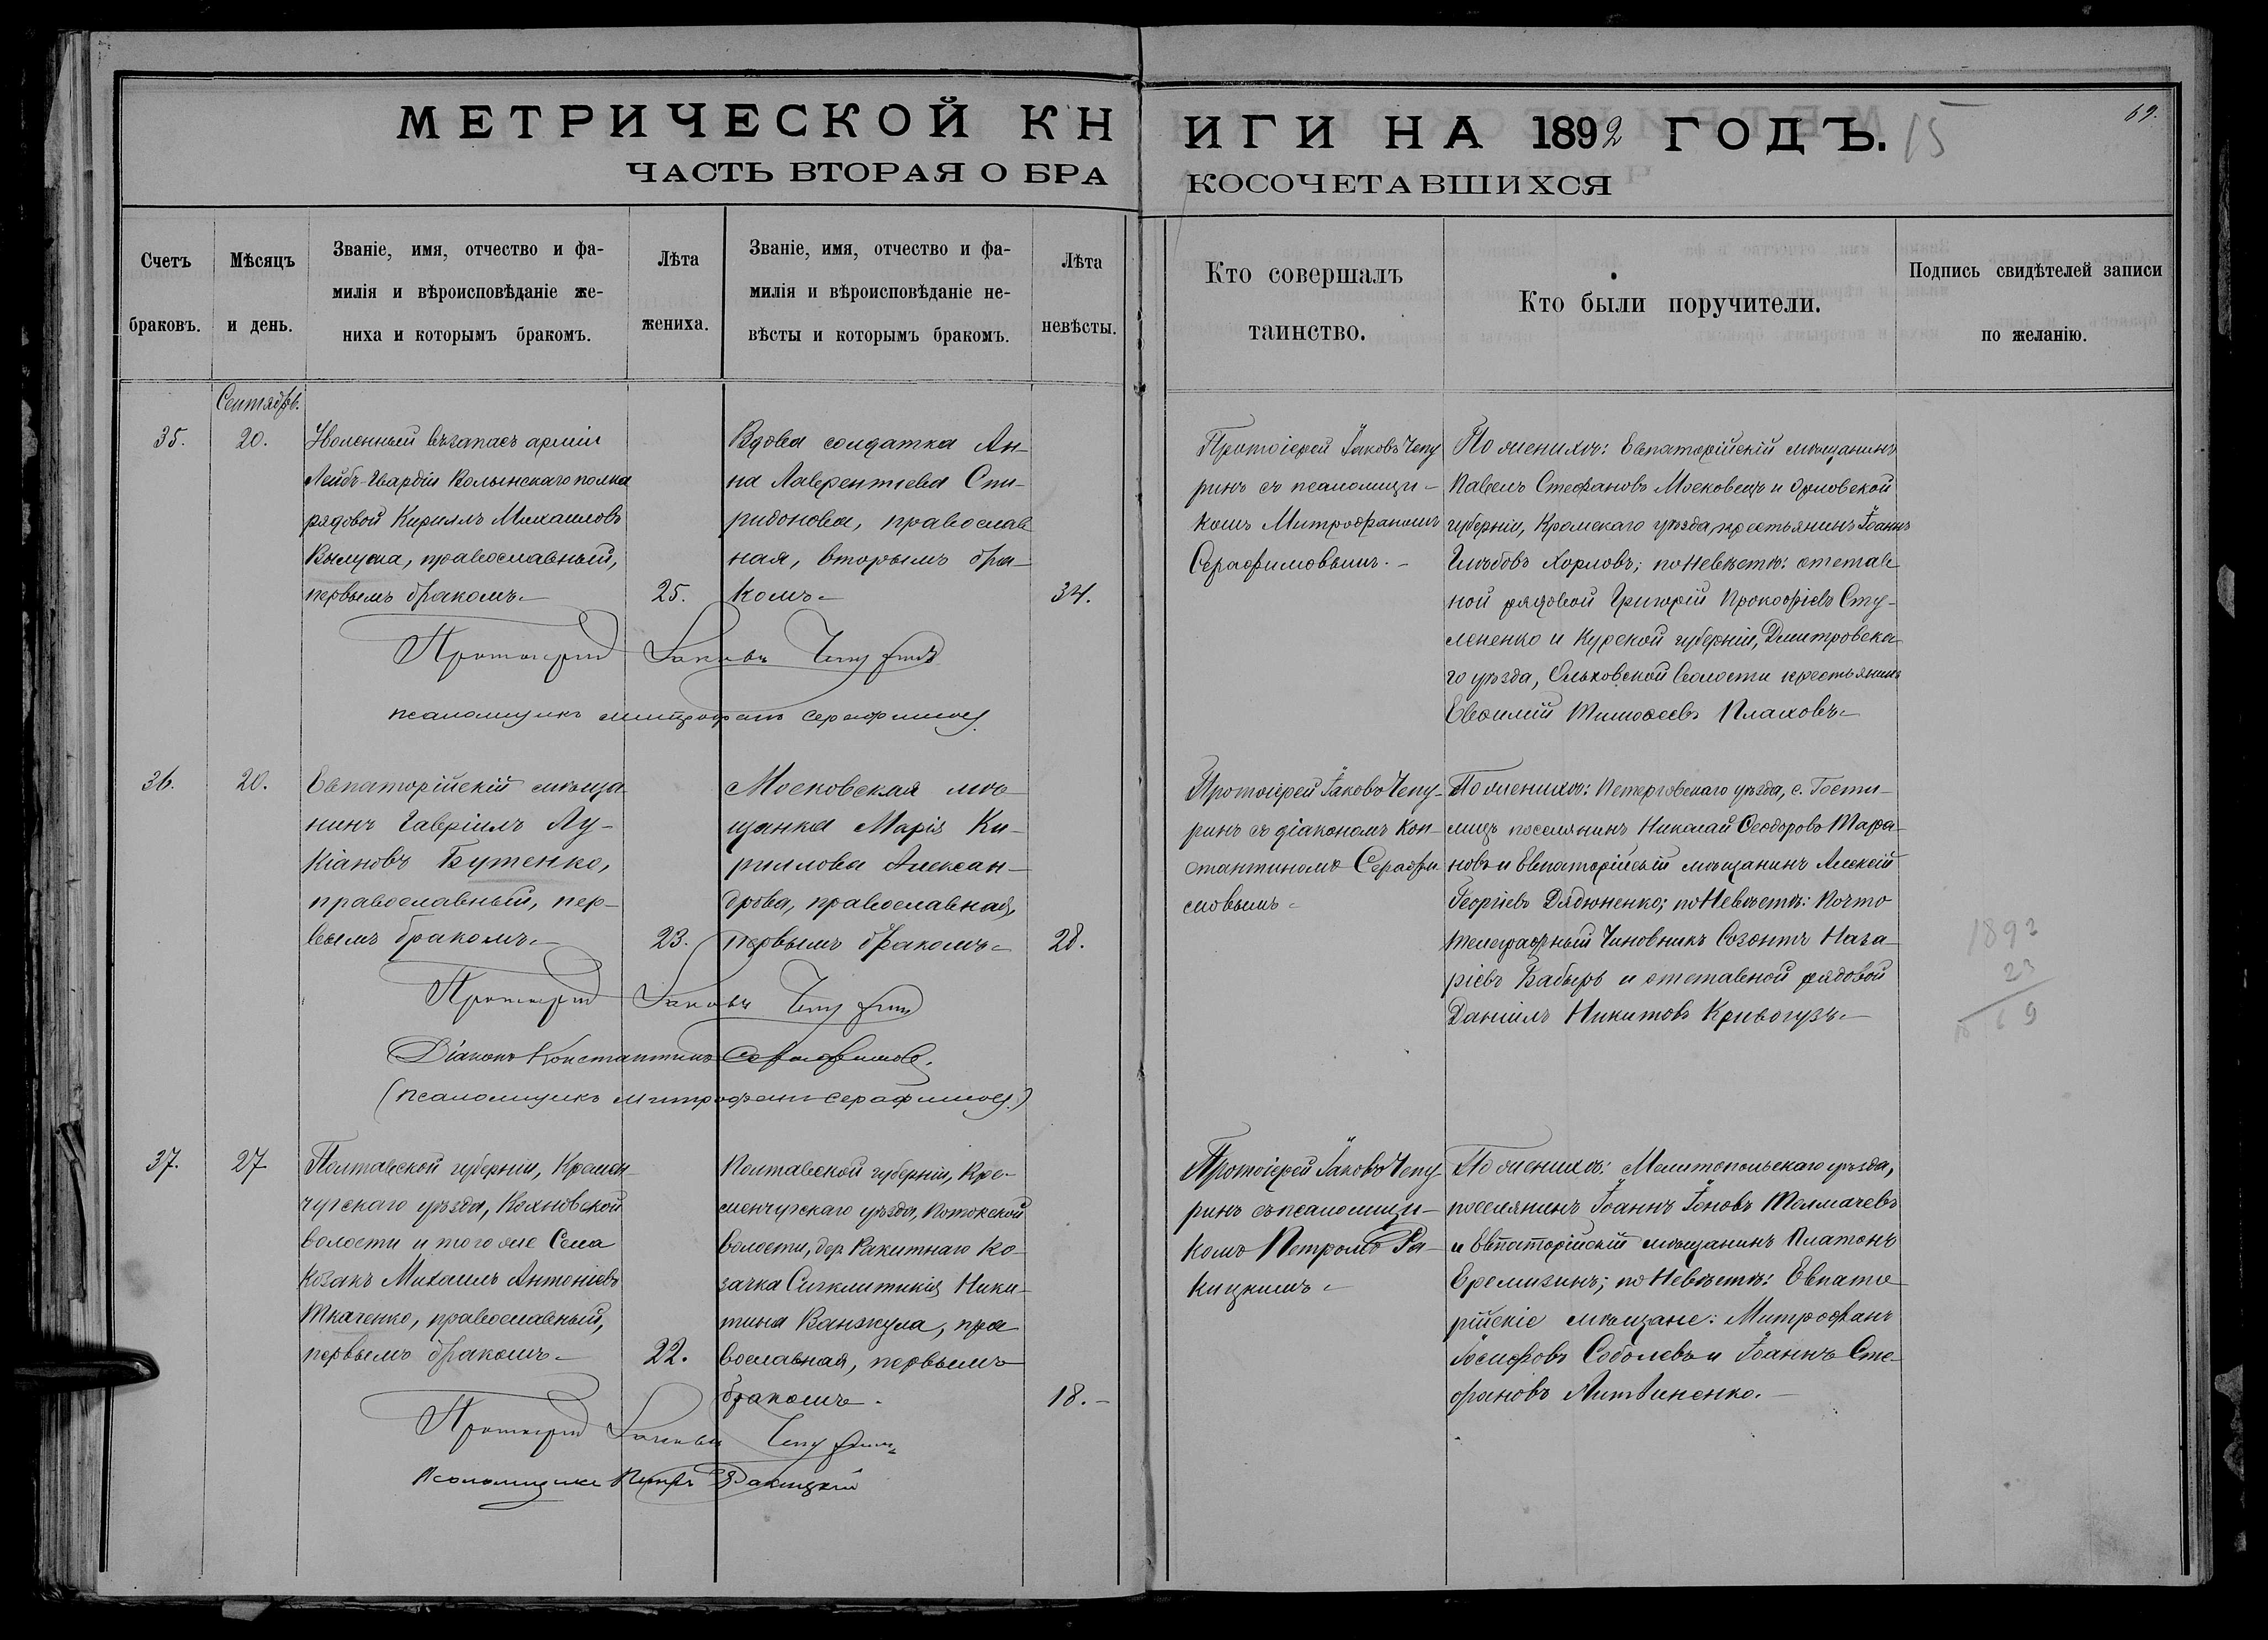 МЕТРИЧЕСКОЙ КНИГИ НА 1892 ГОДЪ.
15
69.
ЧАСТЬ ВТОРАЯ О БРАКОСОЧЕТАВШИХСЯ
Счетъ
браковъ.
Мѣсяцъ
и день.
Званіе, имя, отчество и фа-
милія и вѣроисповѣданіе же-
ниха и которымъ бракомъ.
Лѣта
жениха.
Званіе, имя, отчество и фа-
милія и вѣроисповѣданіе не-
вѣсты и которымъ бракомъ.
Лѣта
невѣсты.
Кто совершалъ
таинство.
Кто были поручители.
Подпись свидѣтелей записи
по желанію.
Сентябрь.
35.
20.
Уволенный въ запасъ арміи
Лейбъ-Гвардіи Волынскаго полка
рядовой Кириллъ Михаиловъ
православный,
первымъ бракомъ.
25.
Вдова солдатка Ан-
на Лаврентіева Спи-
ридонова, православ
ная, вторымъ бра-
комъ.
34.
Протоіерей Іаковъ Чепу
ринъ съ псаломщи-
комъ Митрофаномъ
Серафимовымъ.
По женихѣ: Евпаторійскій мѣщанинъ
Павелъ Стефановъ Московецъ и Орловской
губерніи, Кромскаго уѣзда, крестьянинъ Іоаннъ
Глѣбовъ Хорловъ; по невѣстѣ: отстав
ной рядовой Григорій Прокофіевъ Сту-
лененко и Курской губерніи, Дмитровска-
го уѣзда, Ольховской волости крестьянинъ
Евѳимій Тимоѳеевъ Плаховъ.
Протоіерей Іаковъ Чепуринъ
псаломщикъ Митрофанъ Серафимовъ
36.
20.
Евпаторійскій мѣща
нинъ Гавріилъ Лу-
кіановъ Бутенко,
православный, пер-
вымъ бракомъ.
23.
Московская мѣ-
щанка Марія Ки-
риллова Алексан-
дрова, православная,
первымъ бракомъ.
28.
Протоіерей Іаковъ Чепу-
ринъ съ діакономъ Кон-
стантиномъ Серафи-
мовымъ.
По женихѣ: Петерговскаго уѣзда, с. Гости-
лицъ поселянинъ Николай Ѳеодоровъ Тара-
новъ и Евпаторійскій мѣщанинъ Алексій
Георгіевъ Дядюненко; по невѣстѣ: Почто
телеграфный чиновникъ Созонтъ Наза-
ріевъ Бабыръ и отставной рядовой
Даніилъ Никитовъ Кривогузъ.
1892
23
Протоіерей Іаковъ Чепуринъ
Діаконъ Константинъ Серафимовъ.
(псаломщикъ Митрофанъ Серафимовъ.)
37.
27
Полтавской губерніи, Кремен
чугскаго уѣзда, Кохновской
волости и того же села
козакъ Михаилъ Антоніевъ
Ткаченко, православный,
первымъ бракомъ.
22.
Полтавской губерніи, Кре-
менчугскаго уѣзда, Потокской
волости, дер. Ракитнаго ко-
зачка Сигклитикія Ники-
тина Ванжула, пра
вославная, первымъ
бракомъ.
18.
Протоіерей Іаковъ Чепу-
ринъ съ псаломщи-
комъ Петромъ Ра-
кицкимъ.
По женихѣ: Мелитопольскаго уѣзда,
поселянинъ Іоаннъ Іоновъ Толмачевъ
и Евпаторійскій мѣщанинъ Платонъ
Еремизинъ; по невѣстѣ: Евпато
рійскіе мѣщане: Митрофанъ
Іосифовъ Соболевъ и Іоаннъ Сте-
фановъ Литвиненко.
Протоіерей Іаковъ Чепуринъ
Псаломщикъ Петръ Ракицкій